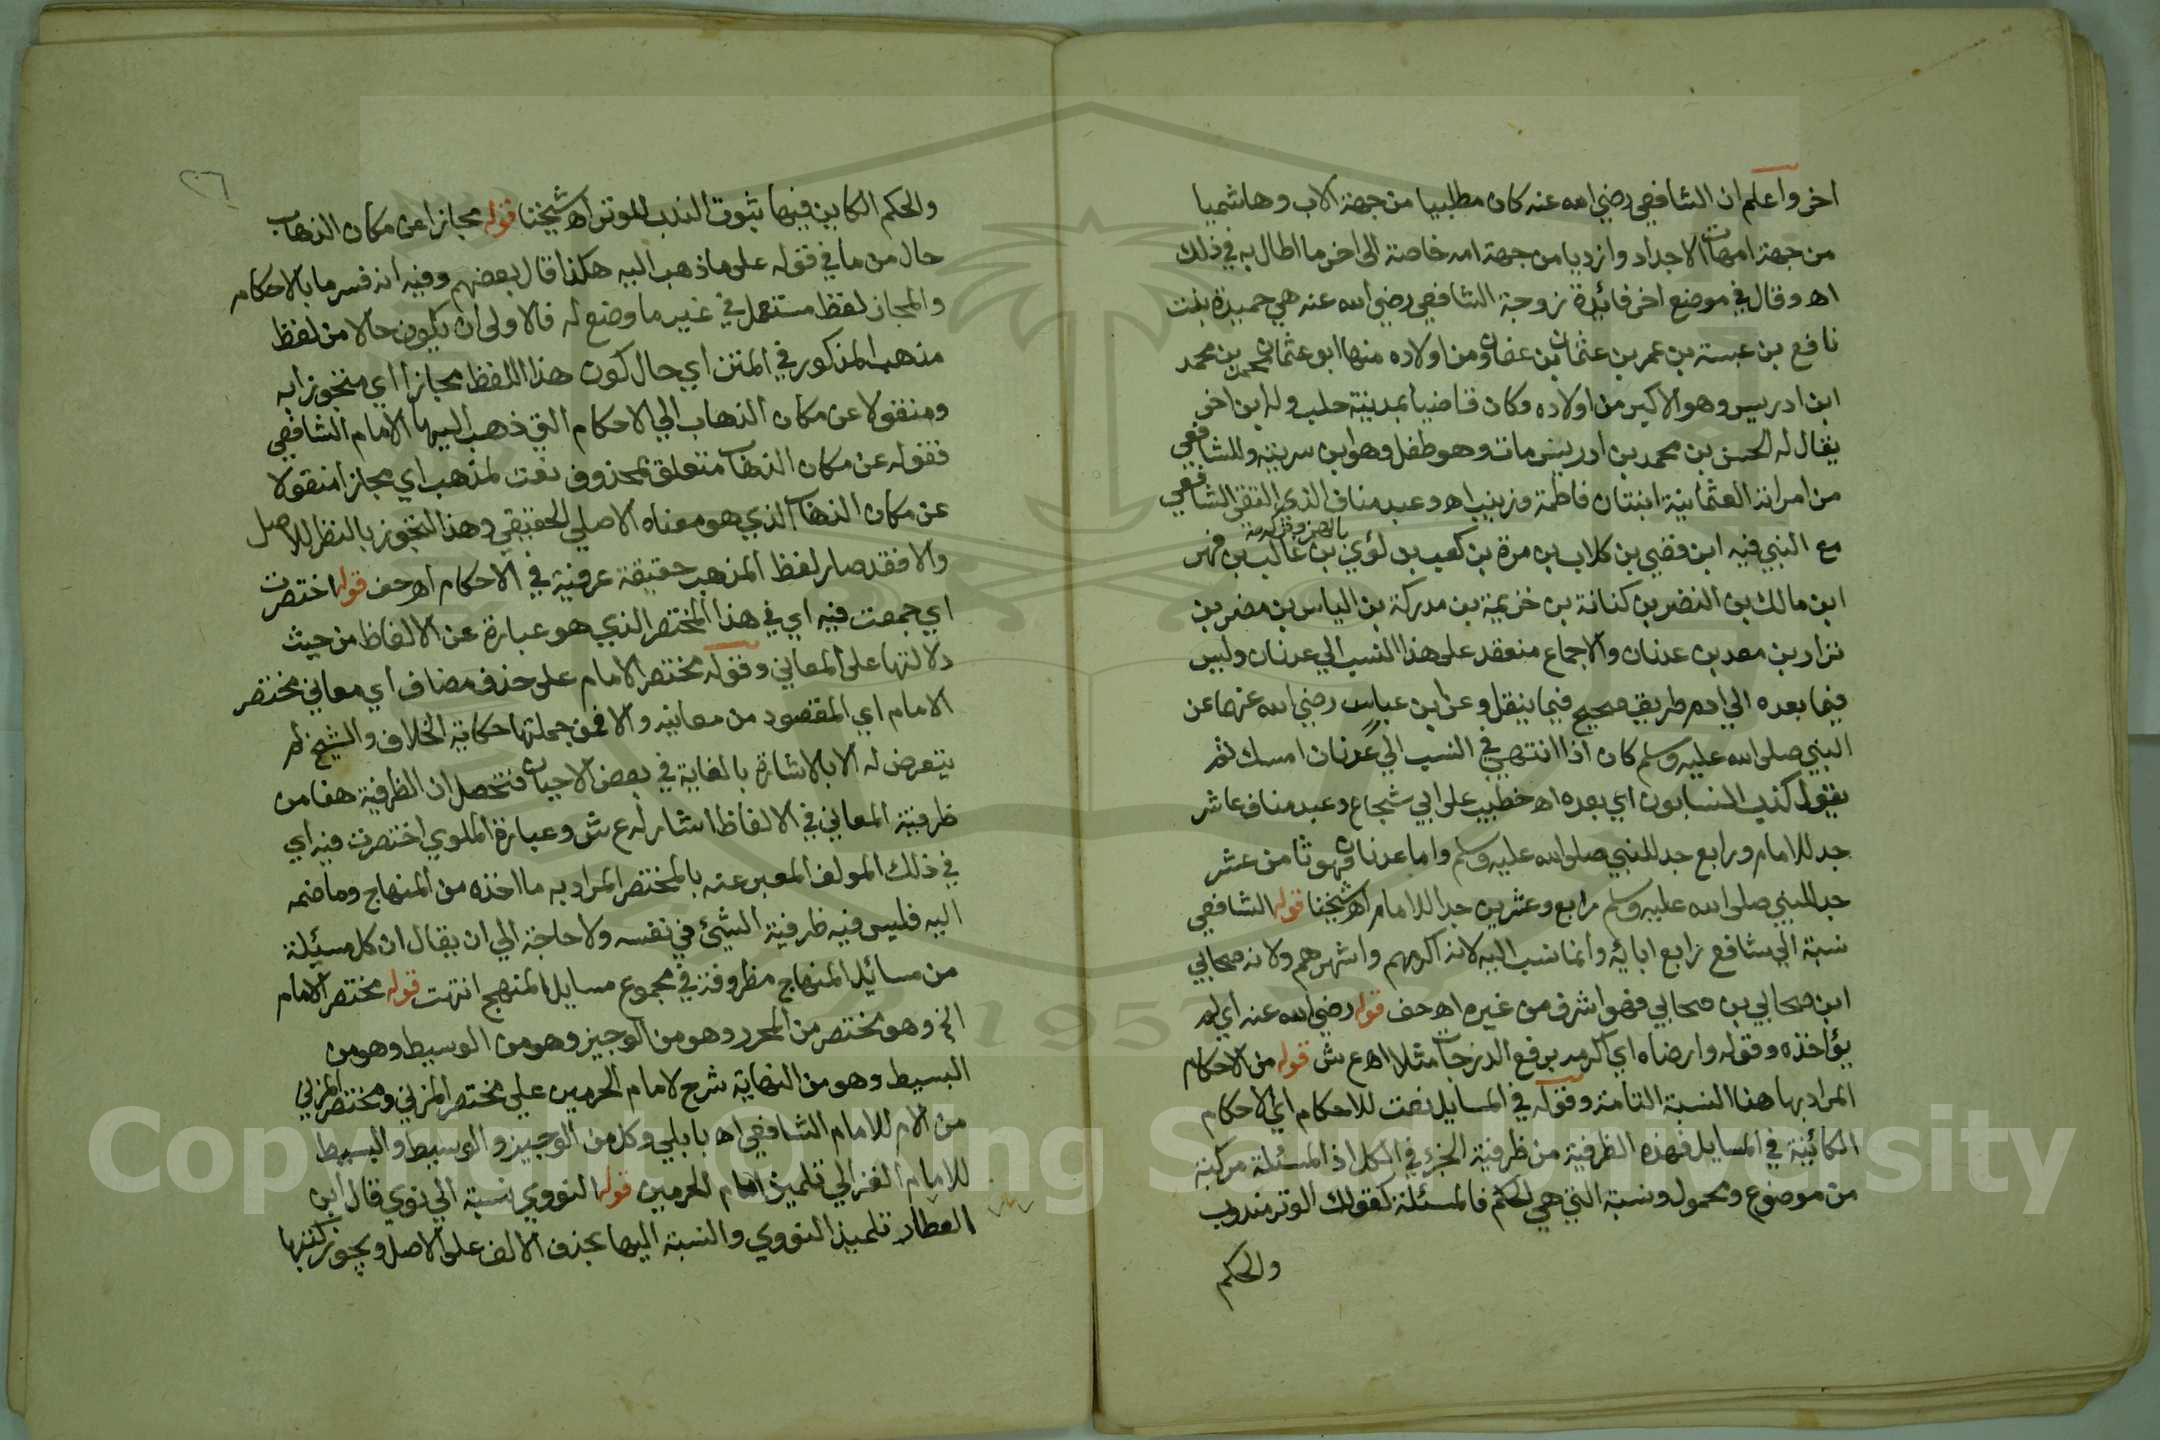 اخر واعلم ان الشافعي رضي الله عنه كان مطلبيا من جهة الاب وهاشميا
من جهة امهات الاجداد وازديا من جهة امه خاصة الى اخر ما اطال به في ذلك
اه وقال في موضع اخر فائدة زوجة الشافعي رضي الله عنه هي حميدة بنت
نافع بن عبسة بن عمر بن عثمان بن عفان ومن اولاده منها ابو عثمان محمد بن محمد
ابن ادريس وهو الاكبر من اولاده وكان قاضيا بمدينة حلب وله ابن اخر
يقال له الحسن بن محمد بن ادريس مات وهو طفل وهو ابن سريته وللشافعي
من امراته العثمانية ابنتان فاطمة وزينب اه وعبد مناف الذي التقى الشافعي
مع النبي فيه ابن قصي بن كلاب بن مرة بن كعب بن لؤي بن غالب بن فهر
بالهمز وتركه منه
ابن مالك بن النضر بن كنانة بن خزيمة بن مدركة بن الياس بن مضر بن
نزار بن معد بن عدنان والاجماع منعقد على هذا النسب الي عدنان وليس
فيما بعده الي ادم طريق صحيح فيما ينقل وعن ابن عباس رضي الله عنهما عن
النبي صلى الله عليه وسلم كان اذا انتهى في النسب الي عدنان امسك ثم
يقول كذب النسابون اي بعده اه خطيب على ابي شجاع وعبد مناف عاشر
جد للامام ورابع جد للنبي صلى الله عليه وسلم واما عدنان فهو ثامن عشر
جد للنبي صلى الله عليه وسلم رابع وعشرين جدا للامام اه شيخنا قوله الشافعي
نسبة الي شافع رابع ابائه وانما نسب اليه لانه اكرمهم واشهرهم ولانه صحابي
ابن صحابي بن صحابي فهو اشرف من غيره اه حف قوله رضي الله عنه اي لم
يؤاخذه وقوله وارضاه اي اكرمه برفع الدرجات مثلا اه ع ش قوله من الاحكام
المراد بها هنا النسبة التامة وقوله في المسايل نعت للاحكام اي الاحكام
الكائنة في المسايل فهذه الظرفية من ظرفية الجزء في الكل اذ المسئلة مركبة
من موضوع ومحمول ونسبة التي هي الحكم فالمسئلة كقولك الوتر مندوب
والحكم
٢٦
والحكم الكاين فيها ثبوت الندب للوتر اه شيخنا قوله مجازا عن مكان الذهاب
حال من ما في قوله على ما ذهب اليه هكذا قال بعضهم وفيه انه فسر ما بالاحكام
والمجاز لفظ مستعمل في غير ما وضع له فالاولى ان يكون حالا من لفظ
مذهب المذكور في المتن اي حال كون هذا اللفظ مجازا اي متجوزا به
ومنقولا عن مكان الذهاب الي الاحكام التي ذهب اليها الامام الشافعي
فقوله عن مكان الذهاب متعلق بمحذوف نعت لمذهب اي مجازا منقولا
عن مكان الذهاب الذي هو معناه الاصلي الحقيقي وهذا التجوز بالنظر للاصل
والا فقد صار لفظ المذهب حقيقة عرفية في الاحكام اه حف قوله اختصرت
اي جمعت فيه اي في هذا المختصر الذي هو عبارة عن الالفاظ من حيث
دلالتها على المعاني وقوله مختصر الامام على حذف مضاف اي معاني مختصر
الامام اي المقصود من معانيه والا فمن جملتها حكاية الخلاف والشيخ لم
يتعرض له الا بالاشارة بالغاية في بعض الاحيان فتحصل ان الظرفية هنا من
ظرفية المعاني في الالفاظ اشار له ع ش وعبارة الملوي اختصرت فيه اي
في ذلك المولف المعبر عنه بالمختصر المراد به ما اخذه من المنهاج وما ضمه
اليه فليس فيه ظرفية الشئ في نفسه ولا حاجة الي ان يقال ان كل مسئلة
من مسائل المنهاج مظروفة في مجموع مسايل المنهج انتهت قوله مختصر الامام
الخ وهو مختصر من المحرر وهو من الوجيز وهو من الوسيط وهو من
البسيط وهو من النهاية شرح لامام الحرمين على مختصر المزني ومختصر المزني
من الام للامام الشافعي اه بابلي وكل من الوجيز والوسيط والبسيط
للامام الغزالي تلميذ امام الحرمين قوله النووي نسبة الي نوي قال ابن
العطار تلميذ النووي والنسبة اليها بحذف الالف على الاصل ويجوز كتبها